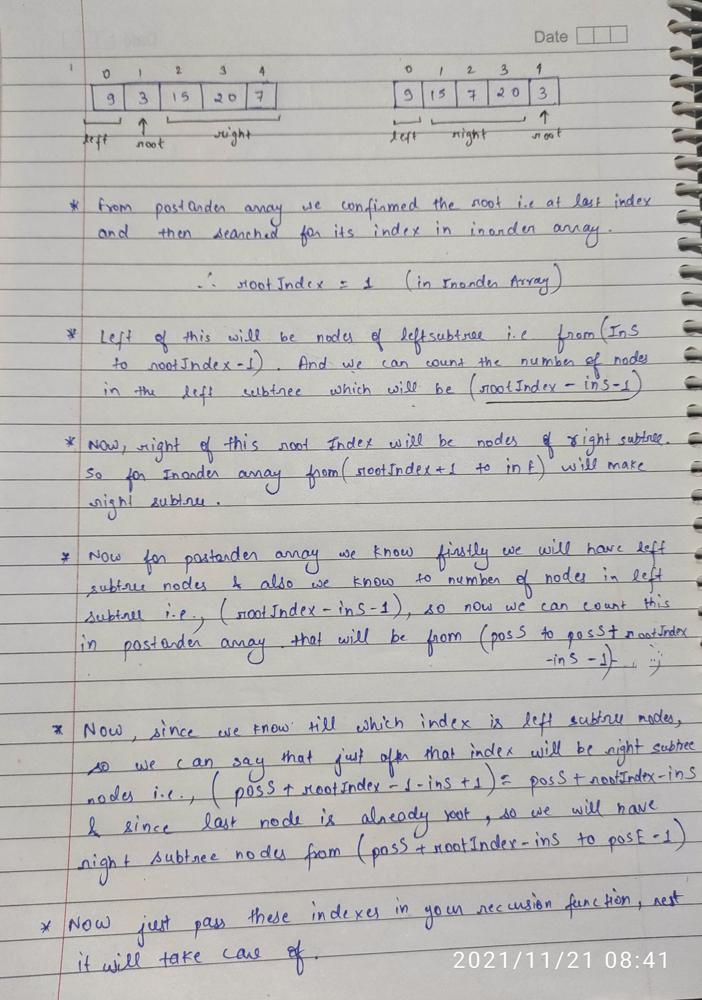 Date
0 1 2 3 4
9 3 15 20 7
left root right
0 1 2 3 4
9 15 7 20 3
left right root
* From postOrder array we confirmed the root i.e at last index
and then searched for its index in inorder array.
∴ rootIndex = 1 (in Inorder Array)
* Left of this will be nodes of leftsubtree i.e from (InS
to rootIndex-1). And we can count the number of nodes
in the left subtree which will be (rootIndex - inS-1)
* Now, right of this root Index will be nodes of right subtree.
So for Inorder array from (rootIndex+1 to inE) will make
right subtree.
* Now for postorder array we know firstly we will have left
subtree nodes & also we know to number of nodes in left
subtree i.e., (rootIndex-inS-1), so now we can count this
in postorder array that will be from (posS to posS+rootIndex
-inS-1).
* Now, since we know till which index is left subtree nodes,
so we can say that just after that index will be right subtree
nodes i.e., (posS + rootIndex -1-inS+1) = posS+rootIndex-inS
& since last node is already root, so we will have
right subtree nodes from (posS+rootIndex-inS to posE-1)
* Now just pass these indexes in your recursion function, rest
it will take care of.
2021/11/21 08:41